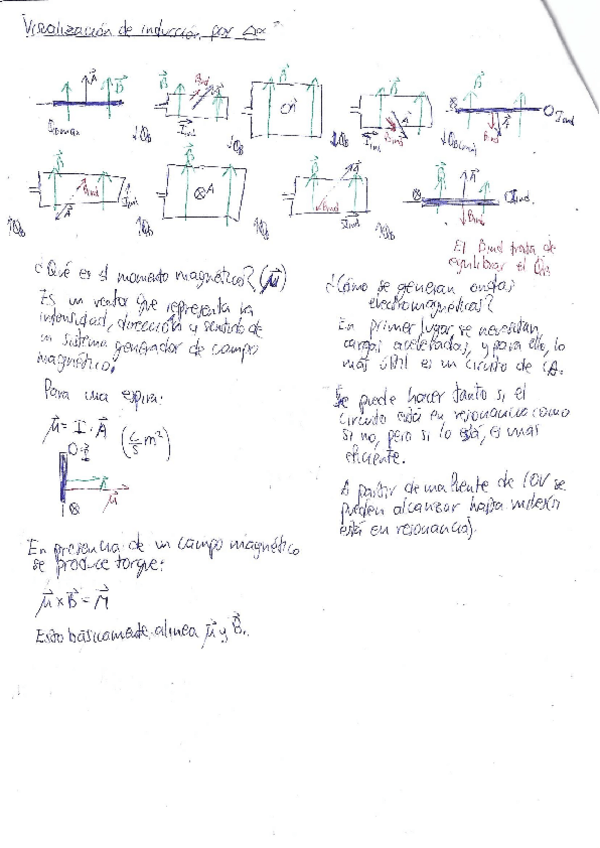 Visualización de inducción por Δα
A B
B Bind A
B
A
B
A
B
A
Φmax
↓ΦB
Iind
↓ΦB
↓ΦB
Iind
Bind
↓ΦB(min)
Bind
Iind
B
B
B
B
A
Bind
A
Iind
A
Bind
Iind
Bind
Iind
↑ΦB
↑ΦB
↑ΦB
↑ΦB
El Bind trata de
equilibrar el ΦB
¿Qué es el momento magnético? (μ)
Es un vector que representa la
intensidad, dirección y sentido de
un sistema generador de campo
magnético.
Para una espira:
μ = I · A (C/s m²)
I
A
μ
En presencia de un campo magnético
se produce torque:
μ x B = M
Esto básicamente alinea μ y B.
¿Cómo se generan ondas
electromagnéticas?
En primer lugar, se necesitan
cargas aceleradas, y para ello, lo
más útil es un circuito de CA.
Se puede hacer tanto si el
circuito está en resonancia como
si no, pero si lo está, es más
eficiente.
A partir de una fuente de 10V se
pueden alcanzar hasta
está en resonancia).